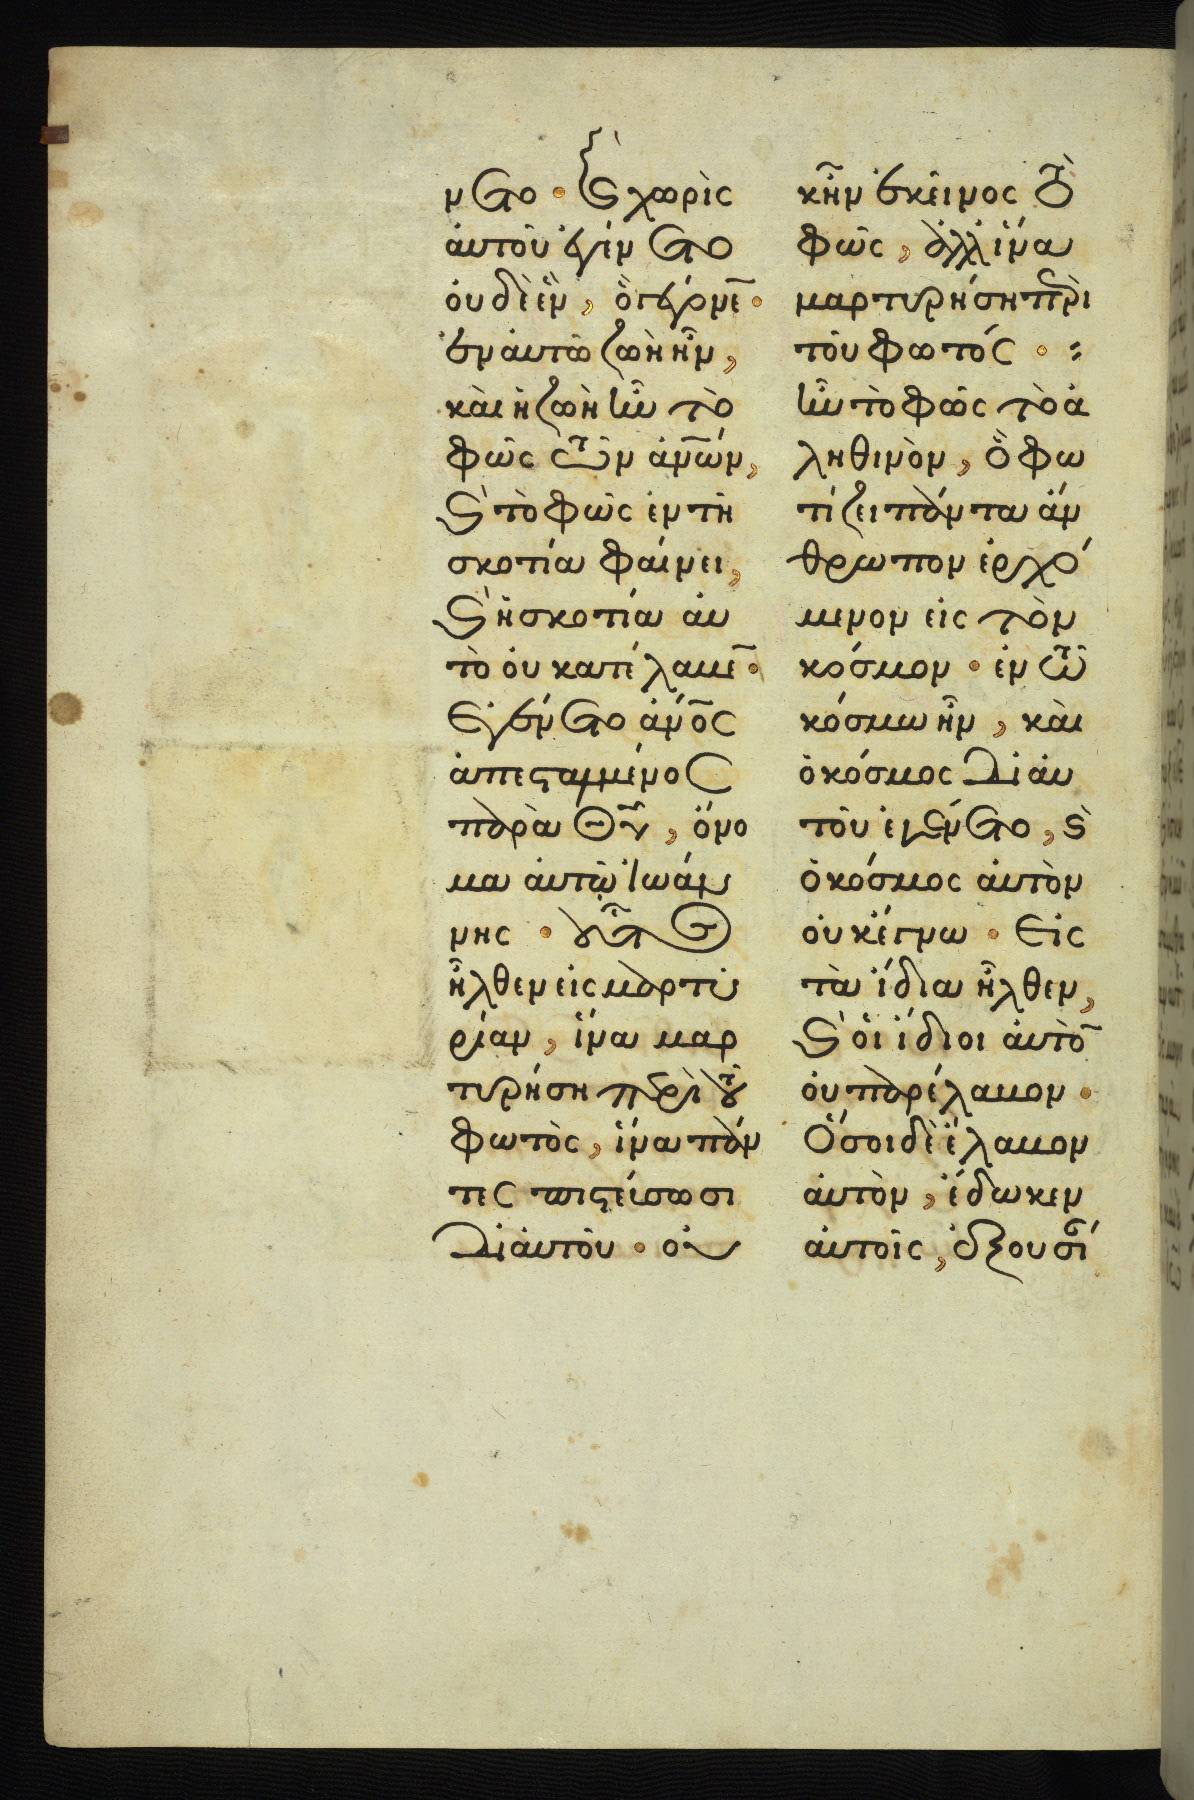 νετο · ϗ χωρὶς
ἀυτοῦ ἐγένετο
ὀυδὲ ἓν, ὃ γέγονε̄ ·
ἐν ἀυτῶ ζωὴ ἦν,
κὰι ἡ ζωὴ ἦν τὸ
φῶς τῶν ἀν̅ων,
ϗ τὸ φῶς ἐν τῆ
σκοτία φαίνει,
ϗ ἡ σκοτία ἀυ
τὸ ὀυ κατέλαβε̄ ·
Ἐγένετο ἄν̅ος
ἀπεσταλμένος
παρὰ Θῦ, ὄνο
μα ἀυτῷ Ἰωάν
νης · οὗτος
ἦλθεν εἰς μαρτυ
ρίαν, ἵνα μαρ
τυρήση περὶ τοῦ
φωτὸς, ἵνα πάν
τες πιστεύσωσι
δι ἀυτοῦ · οὐ
κ ἦν ἐκεῖνος τὸ
φῶς, ἀλλ ἵνα
μαρτυρήση περὶ
τοῦ φωτός · :
ἦν τὸ φῶς τὸ ἀ
ληθινὸν, ὃ φω
τίζει πάντα ἄν
θρωπον ἐρχό
μενον εἰς τὸν
κόσμον · ἐν τῶ
κόσμω ἦν, κὰι
ὁ κόσμος δι ἀυ
τοῦ ἐγένετο, ϗ
ὁ κόσμος ἀυτὸν
ὀυκ ἔγνω · Εἰς
τὰ ἴδια ἦλθεν,
ϗ ὁι ἴδιοι ἀυτὸ̄
ὀυ παρέλαβον ·
Ὅσοι δὲ ἔλαβον
ἀυτὸν, ἔδωκεν
ἀυτοῖς, ἐξουσί